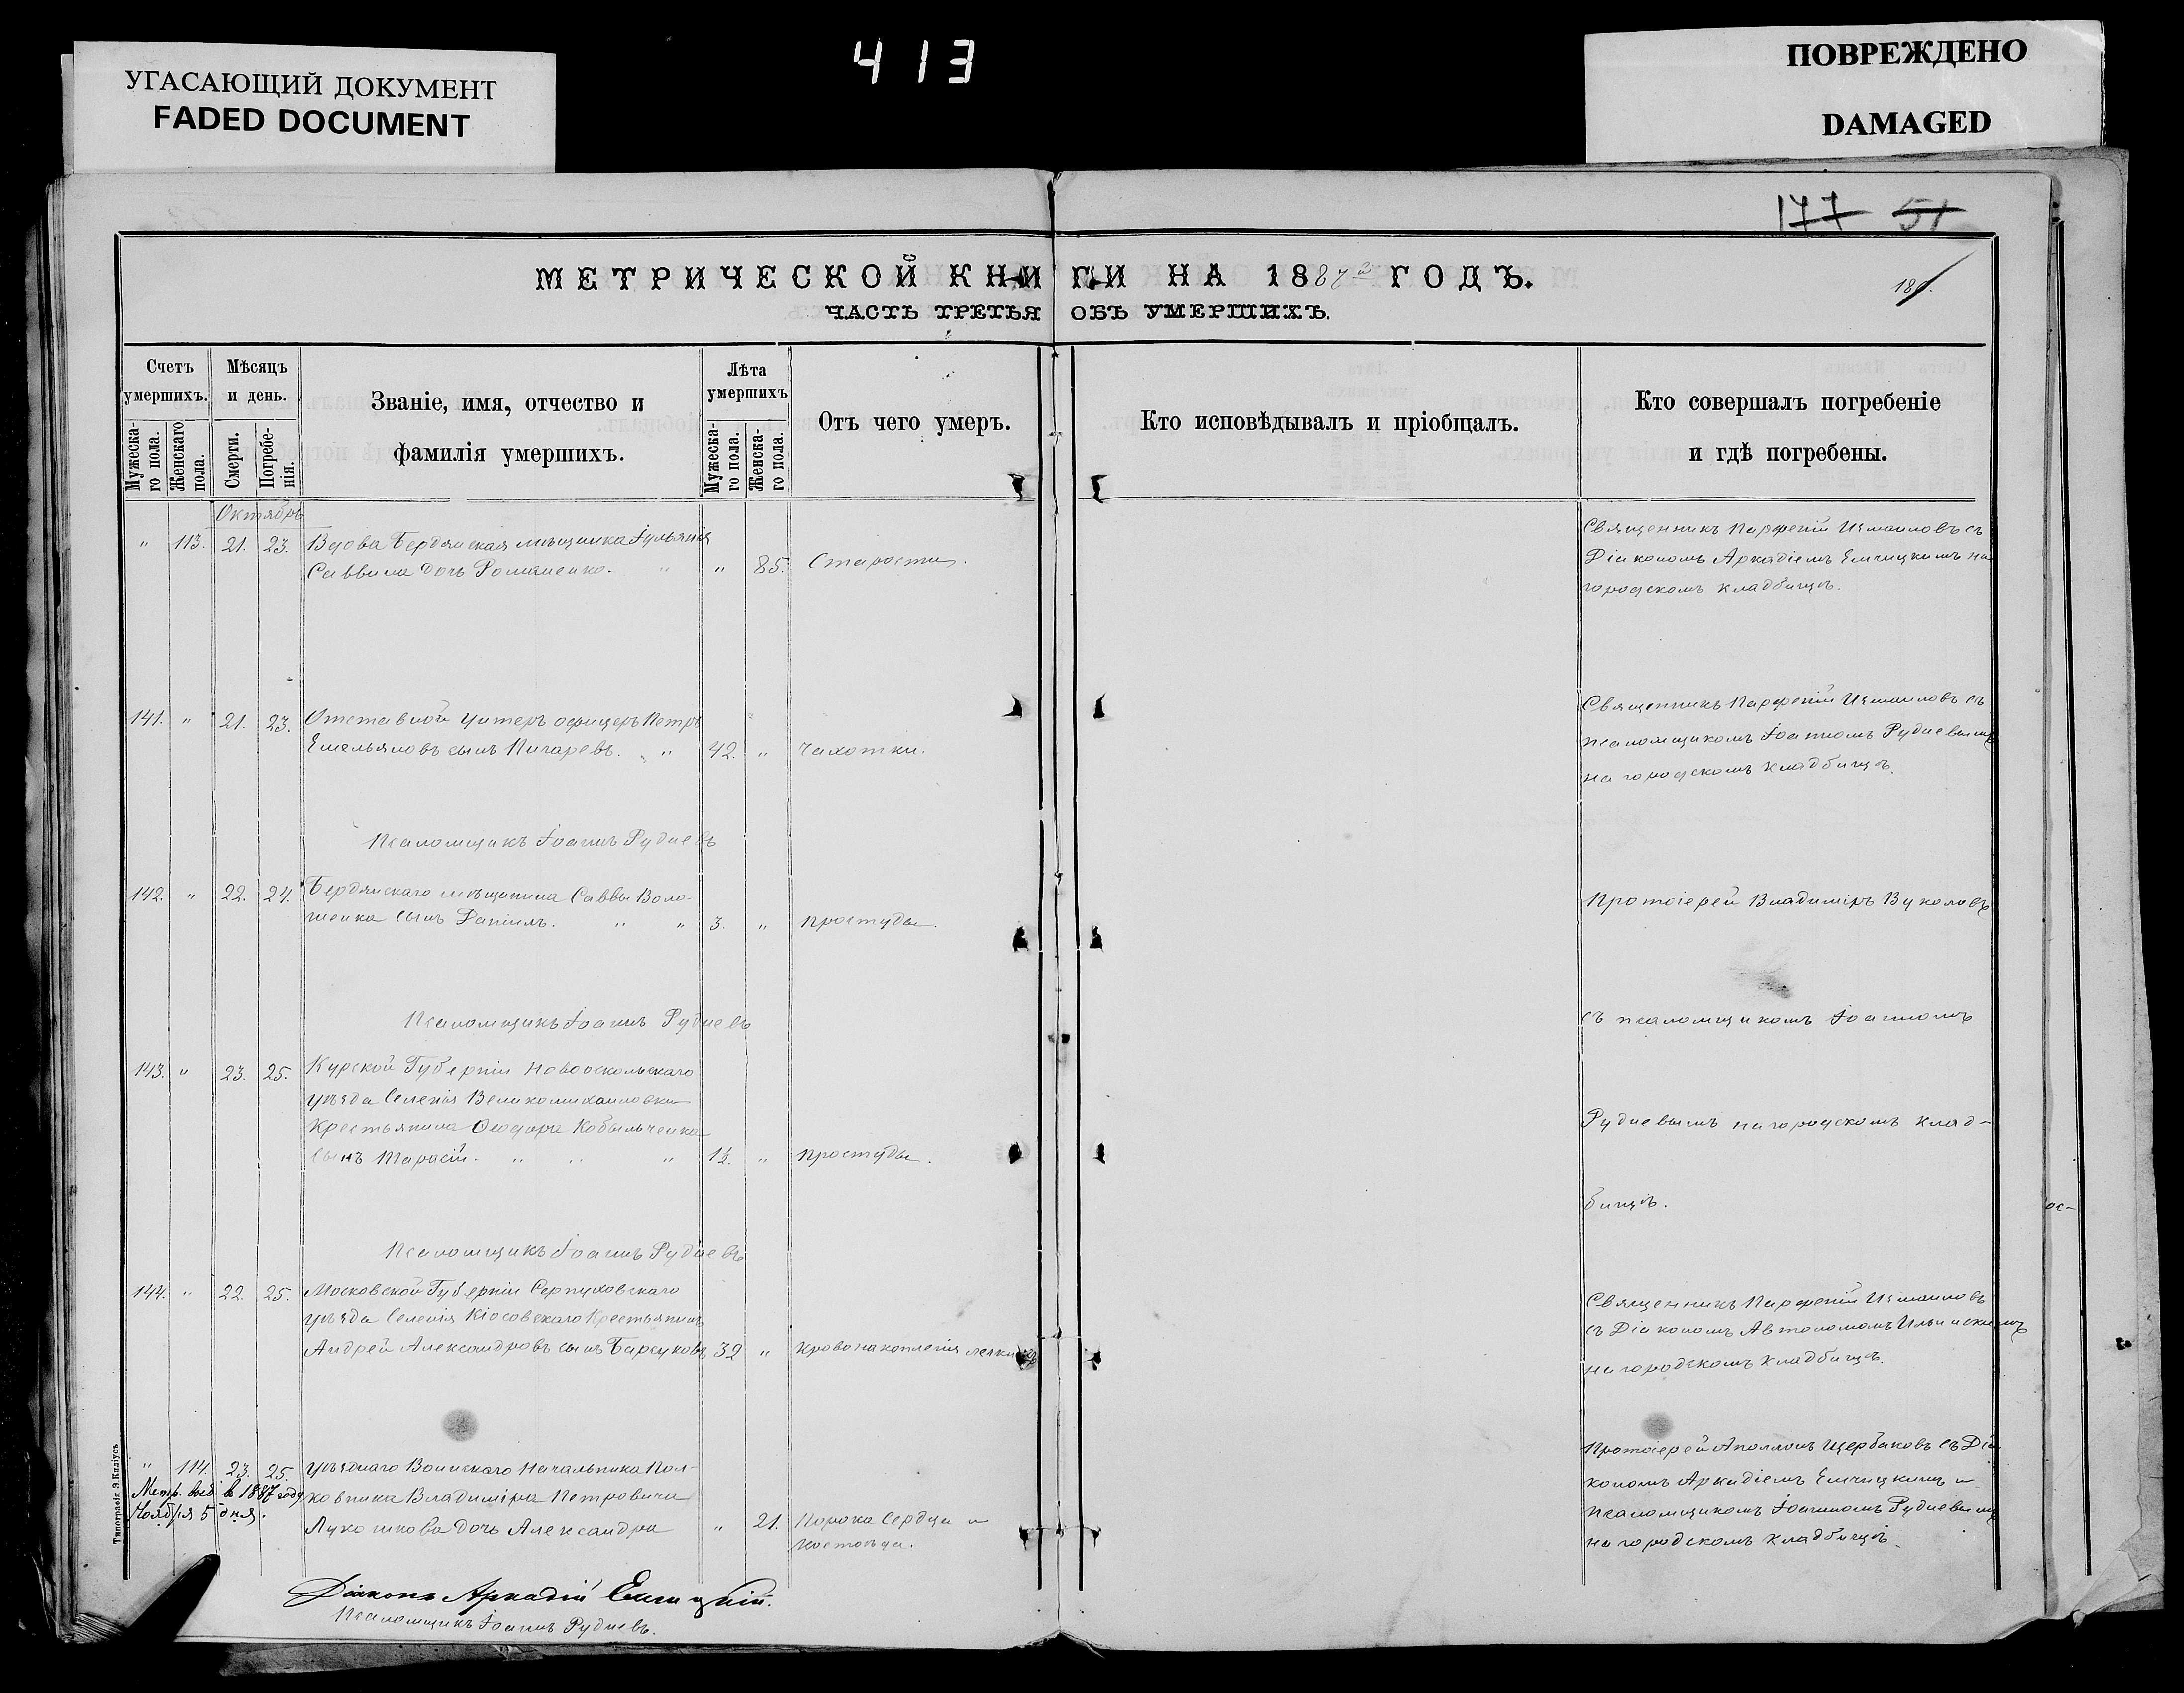 УГАСАЮЩИЙ ДОКУМЕНТ
FADED DOCUMENT
413
ПОВРЕЖДЕНО
DAMAGED
177 51
МЕТРИЧЕСКОЙ КНИГИ НА 1887 ГОДЪ.
ЧАСТЬ ТРЕТЬЯ ОБЪ УМЕРШИХЪ.
Счетъ умершихъ.
Мужеска-го пола.
Женскаго пола.
Мѣсяцъ и день.
Смерти.
Погребе-нія.
Званіе, имя, отчество и
фамилія умершихъ.
Лѣта умершихъ
Мужеска-го пола.
Женска-го пола.
Отъ чего умеръ.
Кто исповѣдывалъ и пріобщалъ.
Кто совершалъ погребеніе
и гдѣ погребены.
Октябрь
" 113. 21. 23. Вдова Бердянская мѣщанка Іульянія
Саввина дочь Романенко. " " 85. Старости.
Священникъ Парфеній Измаиловъ съ
Діакономъ Аркадіемъ Емчицкимъ на
городскомъ кладбищѣ.
141. " 21. 23. Отставной унтеръ офицеръ Петръ
Емельяновъ сынъ Пичаревъ. " 42. " Чахотки.
Священникъ Парфеній Измаиловъ съ
псаломщикомъ Іоанномъ Рудневымъ
на городскомъ кладбищѣ.
Псаломщикъ Іоаннъ Рудневъ
142. " 22. 24. Бердянскаго мѣщанина Саввы Воло-
шенка сынъ Даніилъ. " " 3. " Простуды.
Протоіерей Владиміръ Вуколовъ
Псаломщикъ Іоаннъ Рудневъ
съ псаломщикомъ Іоанномъ
143. " 23. 25. Курской Губерніи Новооскольскаго
уѣзда Селенія Великомихаиловки
Крестьянина Ѳеодора Кобыльченка
сынъ Тарасій. " " " 13. " Простуды.
Рудневымъ на городскомъ клад-
бищѣ.
Псаломщикъ Іоаннъ Рудневъ
144. " 22. 25. Московской Губерніи Серпуховскаго
уѣзда Селенія Кіосовскаго Крестьянинъ
Андрей Александровъ сынъ Барсуковъ 32 " Кровонакопленія легкихъ
Священникъ Парфеній Измаиловъ
съ Діакономъ Автономомъ Ильинскимъ
на городскомъ кладбищѣ.
" 114. 23. 25. Уѣзднаго Воинскаго Начальника Пол-
ковника Владиміра Петровича
Лукошкова дочь Александра " 21. Порока сердца и
Метр. выд. в 1887 году
Ноября 5 дня.
Протоіерей Аполлонъ Щербаковъ съ Діа-
кономъ Аркадіемъ Емчицкимъ и
псаломщикомъ Іоанномъ Рудневымъ
на городскомъ кладбищѣ.
Діаконъ Аркадій Емчицкій.
Псаломщикъ Іоаннъ Рудневъ.
Типографія Э. Киліусъ